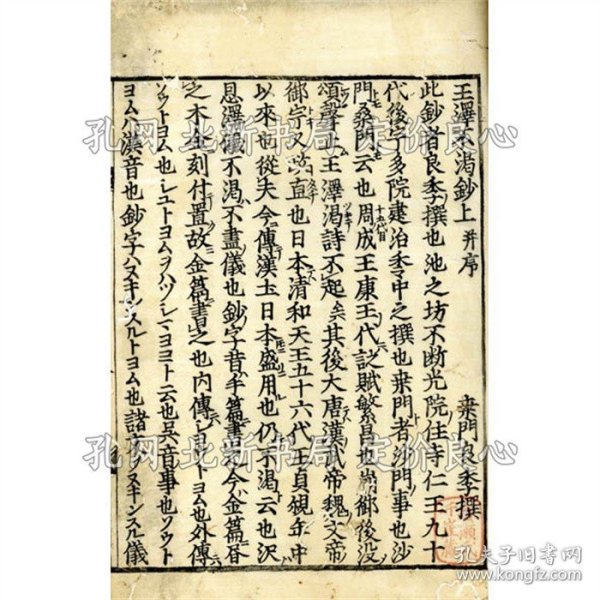 王澤不渇鈔上 并序
桒門良季撰
此鈔者良季撰也池之坊不断光院住寺仁王九十
代後宇多院建治季中之撰也桒門者沙門事也沙
門桑門云也周成王康王代詩賦繁昌也崩御後没
頌聲止王澤渇詩不起矣其後大唐漢武帝魏文帝
御宇又 直也日本清和天王五十六代王貞観年中
以來也從夫今傳漢土日本盛用也仍不渇云也沢
恩澤儀不渇不盡儀也鈔字音手篇書今金篇昼
之木金刻付置故金篇書之也内傳ショウトヨム也外傳
ソウトヨム也
ヨムハ漢音也鈔字ハヌキンスルトヨム也諸 ヌキンスル儀
孔网 北新书局 定价良心
孔网 北新书局 定价良心
孔网 北新书局 定价良心
孔夫子旧书网
www.kongfz.com